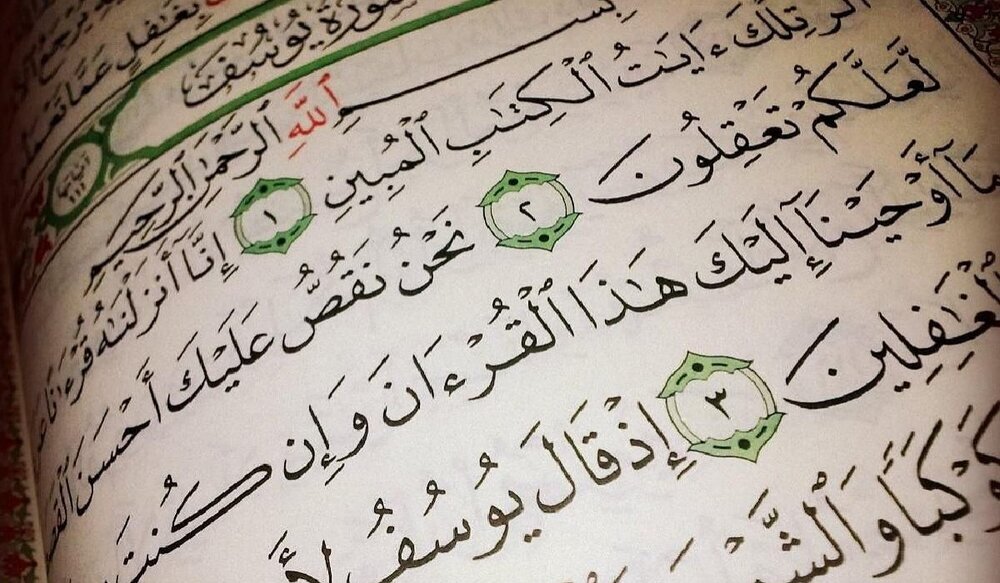 بِغَٰفِلٍ عَمَّا تَعْمَلُ
سُورَةُ يُوسُفَ
بِسْمِ ٱللَّهِ ٱلرَّحْمَٰنِ ٱلرَّحِيمِ
الٓر تِلْكَ ءَايَٰتُ ٱلْكِتَٰبِ ٱلْمُبِينِ ١ إِنَّآ أَنزَلْنَٰهُ قُرْءَٰنًا
لَّعَلَّكُمْ تَعْقِلُونَ ٢ نَحْنُ نَقُصُّ عَلَيْكَ أَحْسَنَ ٱلْقَصَ
مَآ أَوْحَيْنَآ إِلَيْكَ هَٰذَا ٱلْقُرْءَانَ وَإِن كُنتَ
ٱلْغَٰفِلِينَ ٣ إِذْ قَالَ يُوسُفُ لِأَ
وْكَبًا وَٱلشَّمْ